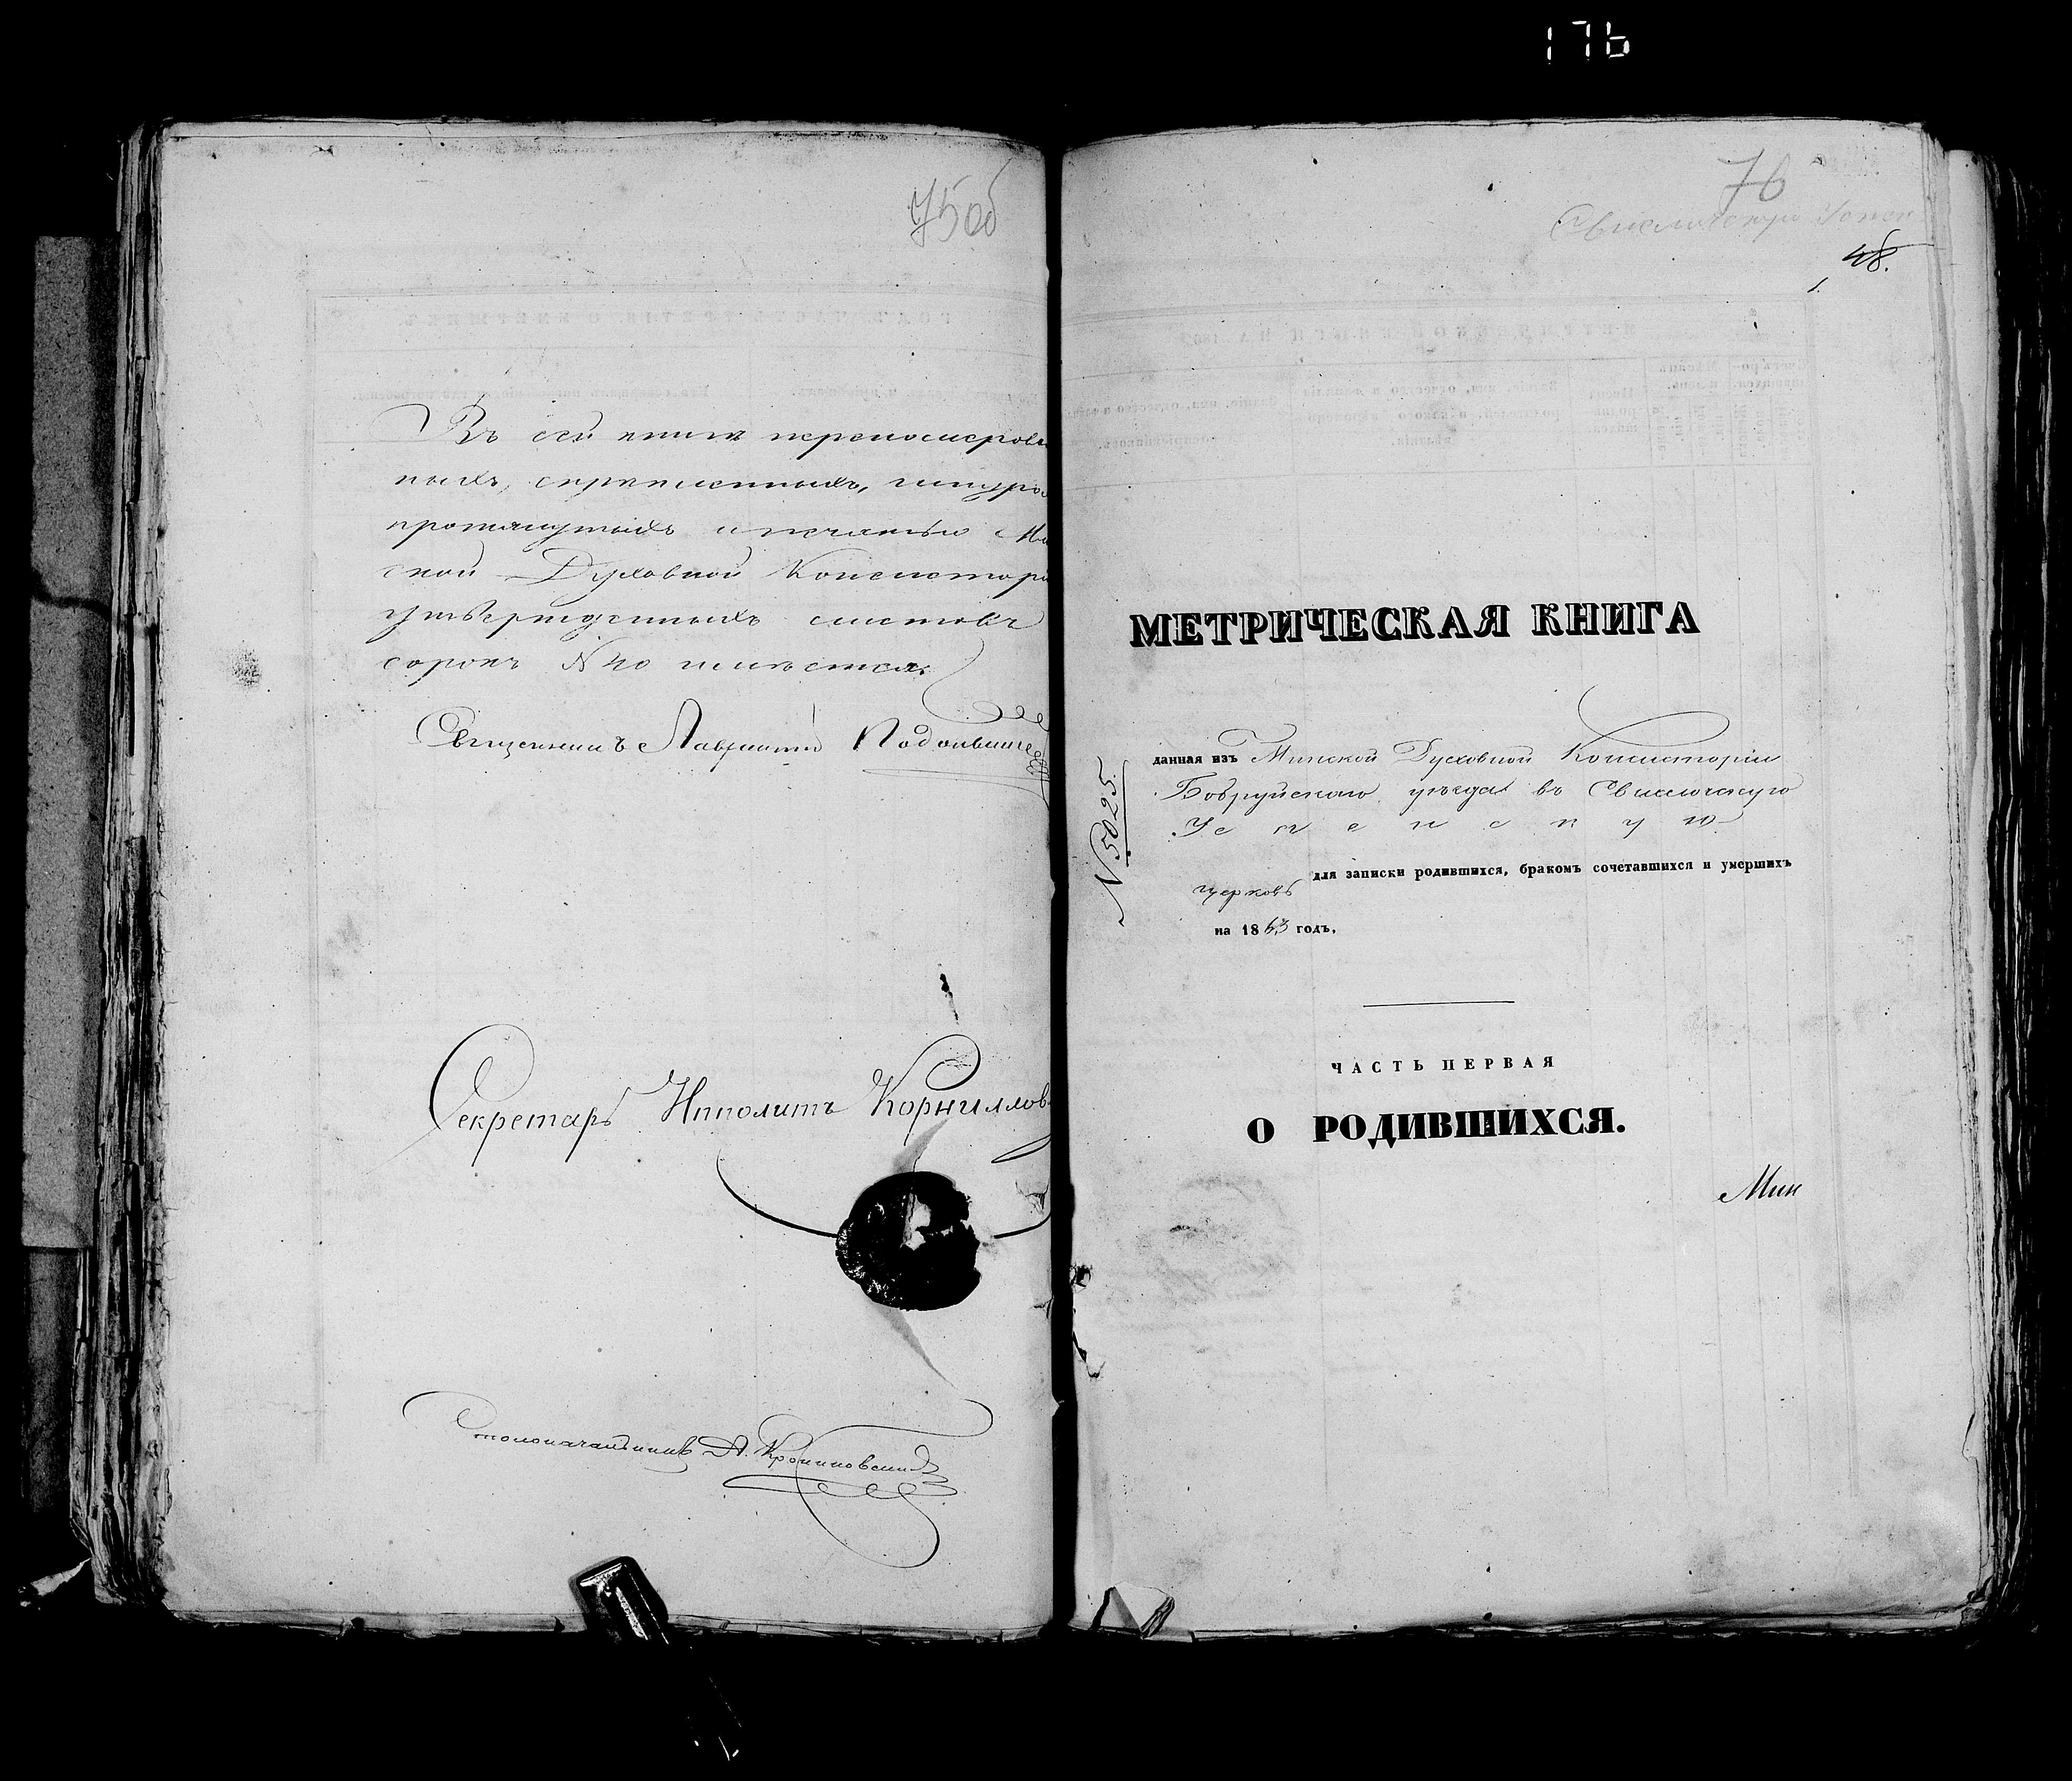 176
75об
Въ сей книгѣ перенумерова
ныхъ, скрѣпленныхъ, шнуро
протянутыхъ и печатью Ми
ской Духовной Консистори
утвержденныхъ листовъ
сорокъ N 40 имѣется.
Священникъ Лаврентій
Секретарь Ипполитъ Корниллов
Столоначальникъ А.
76
Свислочскую Успен
48.
1.
МЕТРИЧЕСКАЯ КНИГА
данная изъ Минской Духовной Консисторіи
Бобруйскаго уѣзда въ Свислочскую
Успенскую
для записки родившихся, бракомъ сочетавшихся и умершихъ
церковь
на 1863 годъ.
N 5025.
ЧАСТЬ ПЕРВАЯ
О РОДИВШИХСЯ.
Мин